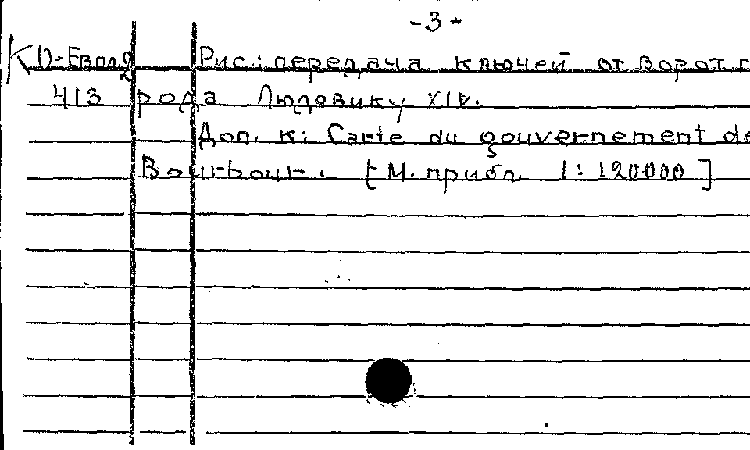 - 3 -
К 0-Евп 2 Рис.: передача ключей от ворот г
4/3 рода Людовику XIV.
Доп. к: Carte du gouvernement de
Bourbour. [М. прибл. 1:120000]